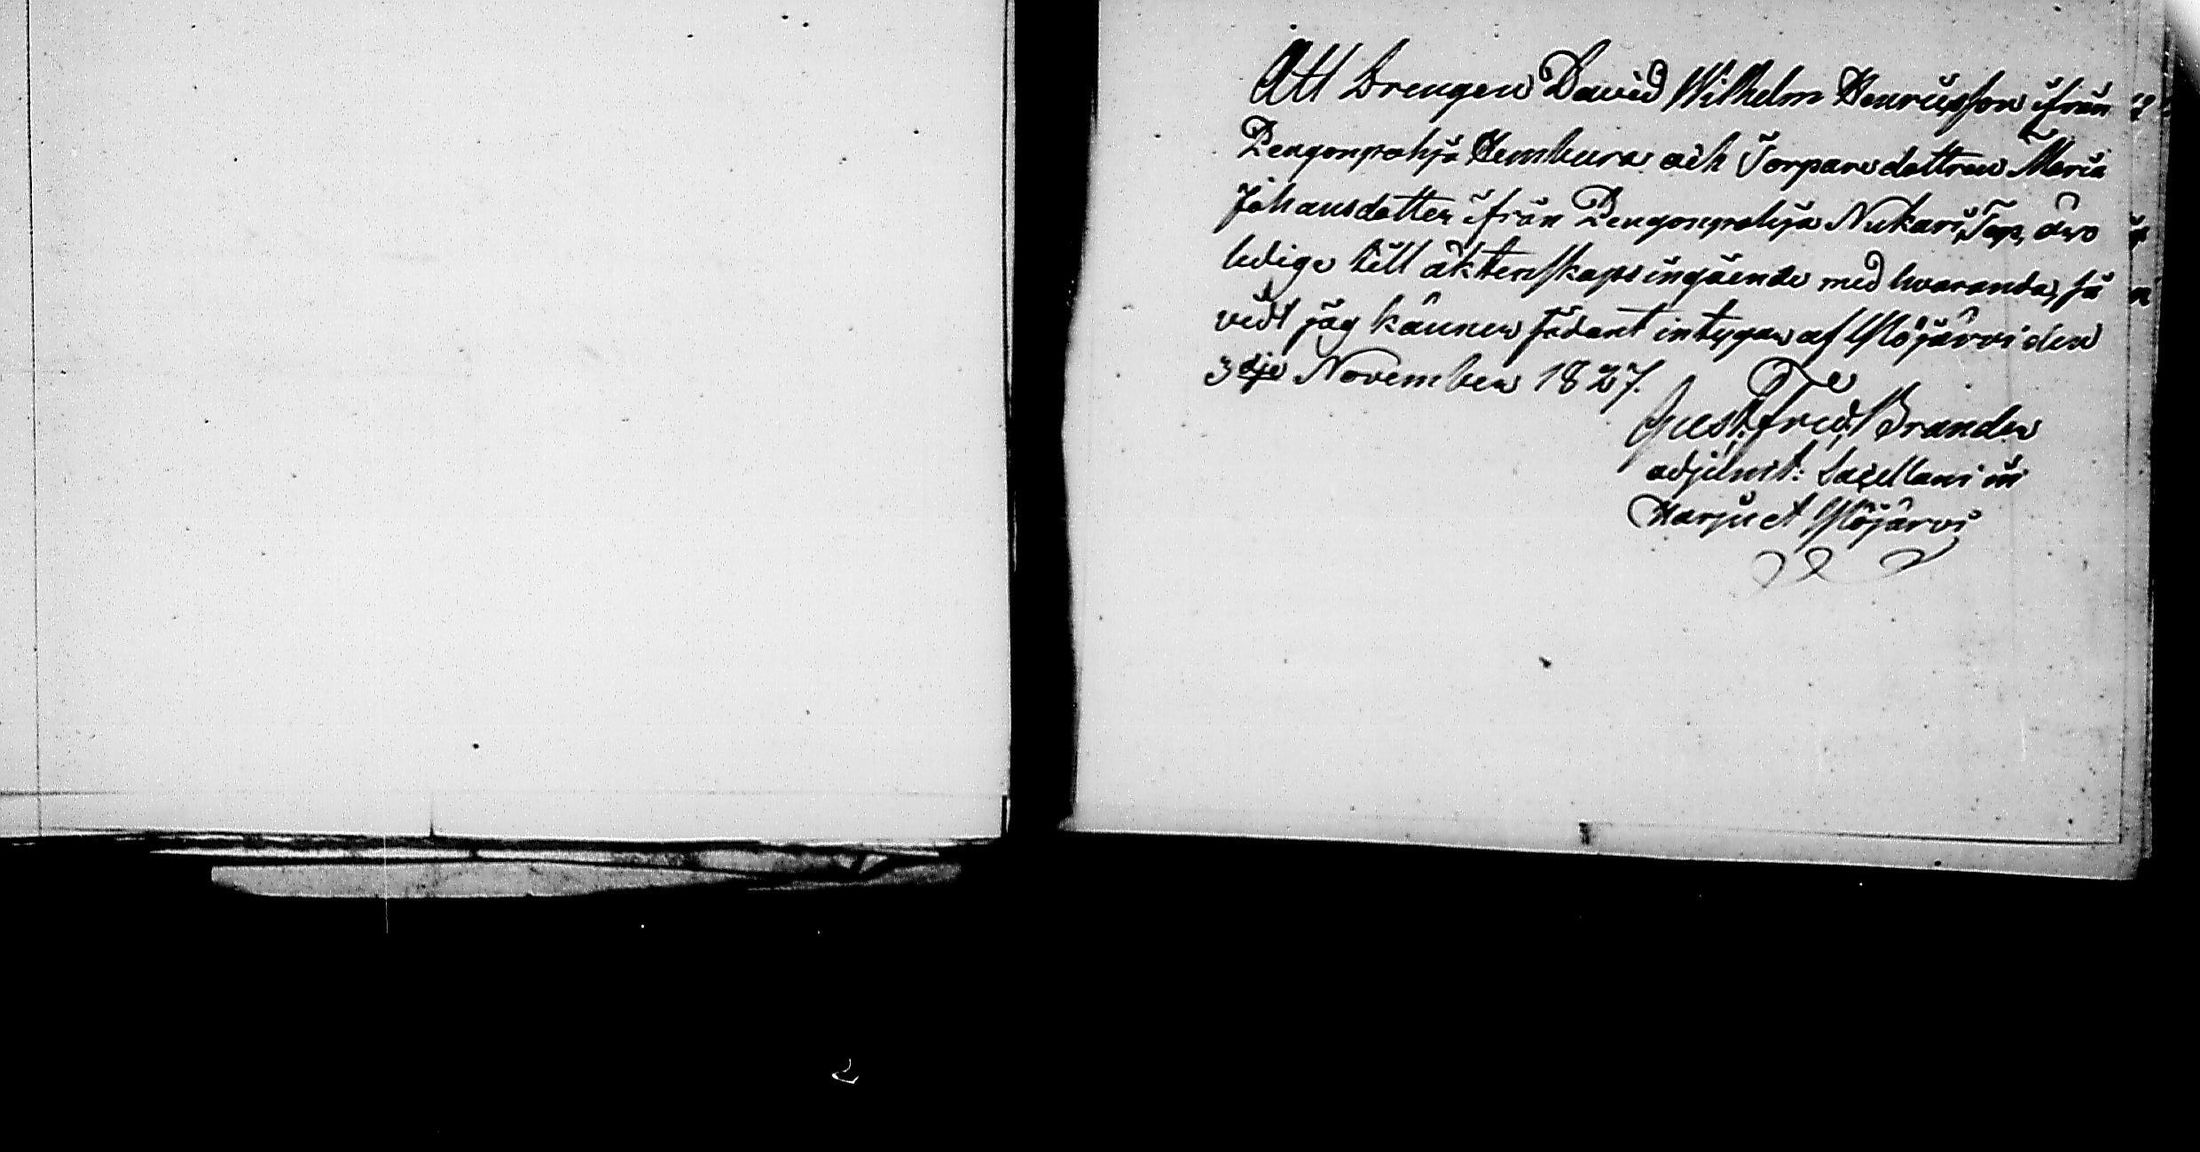 Att Drengen David Wilhelm Henricsson ifrån
Pengonpohja Hembura och Torpare dottren Maria
Johansdotter ifrån Pengonpohja Nukari Torp, äro
ledige till äktenskaps ingående med hvarandra, så
vidt jag känner sådant intygar af Ylöjärvi den
3dje November 1827.
Gust. Fred. Brander
adjunct: Sacellani in
Harju et Ylöjärvi